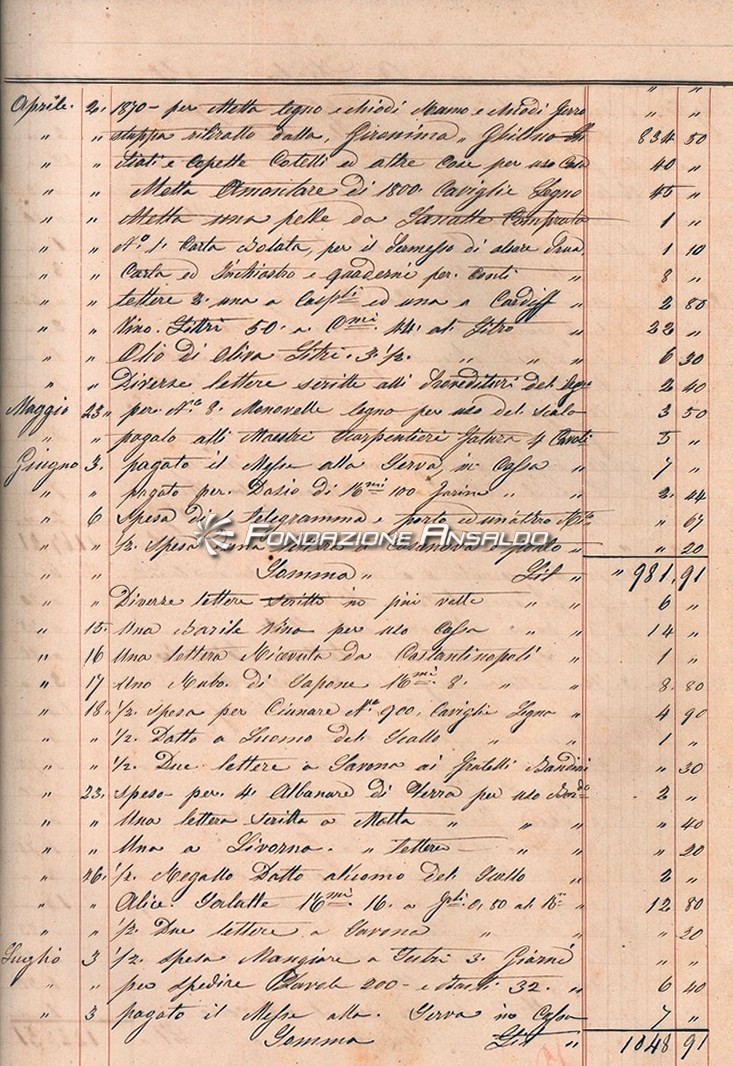 " "
Aprile. 2. 1870 - per Metta legno e chiodi Ramo e chiodi ferro " "
" " stuppa ritiratto dalla, Geronima, 834 50
" " e Capelle Cotelli ed altre Cose per uso 40 "
" " Metta Amonitare di 1800. Caviglie Legno 45 "
" " Metta una pelle da Comprata 1 "
" " N.º 1. Carta Bolata, per il Permesso di 1 10
" " Carta ed Inchiostro e quaderni per. Conti " 8 "
" " Lettere 2. una a ed una a Cardiff " 2 80
" " Vino. Littri 50. a Cmi. 44. al Litro " 22 "
" " Olio di Oliva Litri. 3 1/2. " " " 6 30
" " Diverse lettere scritte alli del 2 40
Maggio 23 " per. N.º 8. Manovelle legno per uso del Scalo 3 50
" " pagato alli Maestri 4 5 "
Giugno 3. pagato il Mese alla Serva, in Cassa " 7 "
" " pagato per. Dasio di 100 farina " " 2. 44
" 6 Spesa di 1 telegramma e porto ed un'altro " 67
FONDAZIONE ANSALDO
" " 1/2. Spesa una a e porto " " 20
Somma " Lit " " 981, 91
" " Diverse lettere scritte in più volte " " 6 "
" 15. Una Barile Vino per uso Cassa " " 14 "
" 16 Una lettera Ricevuta da Costantinopoli " 1 "
" 17 Uno Rubo. di Sapone 8. " " 8. 80
" 18 " 1/2. Spesa per N.º 900. Caviglie Legno " 4 90
" " 1/2. Datto a Luomo del Scallo " " 1 "
" " 1/2. Due lettere a Savona ai fratelli " 30
" 23. Speso per. 4. di Terra per uso 2 "
" " Una lettera scritta a Malta " " " " 40
" " Una a Livorno. " lettere " " " 20
" 26. 1/2. Regallo Datto al uomo del Scallo " 2 "
" " Alice Salatte 16. a 0,80 al 12 80
" " 1/2. Due lettere a Savona " " " 20
Luglio 3 1/2. Spesa Mangiare a 3. Giorni " "
" " per spedire Tavole 200 - e 32. " 6 40
" 3 pagato il Mese alla. Serva in Cassa 7 "
Somma Lit " 1048 91